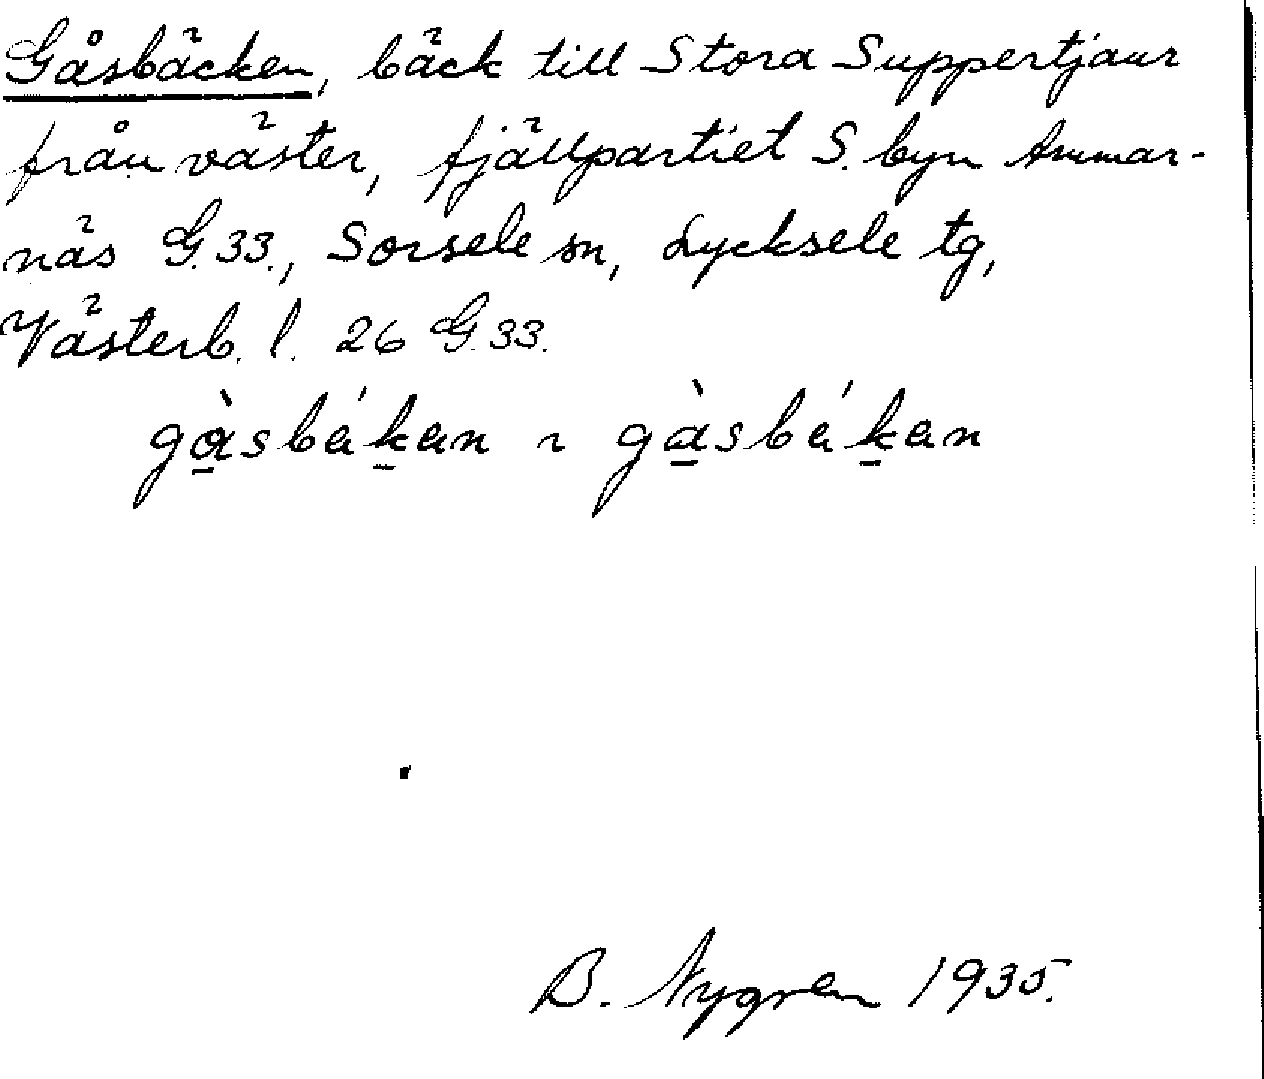 Gåsbäcken, bäck till Stora Suppertjaur
från väster, fjällpartiet S. byn Ammar-
näs G.33., Sorsele sn, Lycksele tg,
Västerb. l. 26 G.33.
gὰsbákan ~ gàsbákan
B. Nygren 1935.